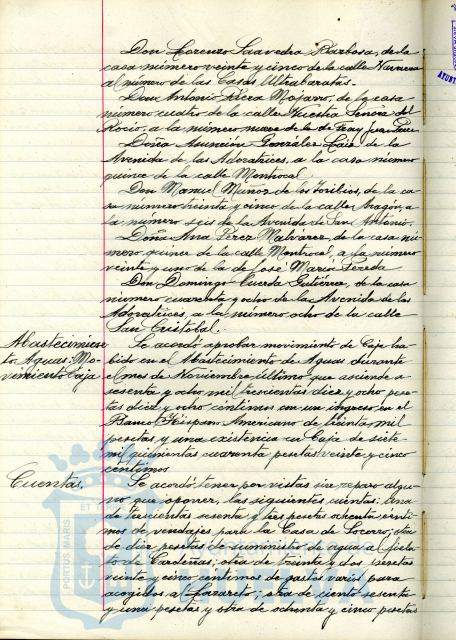 Don Lorenzo Saavedra Barbosa, de la
casa número veinte y cinco de la calle Navarra
al número de las Casas Ultrabaratas.-
Don Antonio Riera Mojarro, de la casa
número cuatro de la calle Nuestra Señora del
Rocío, a la número nueve de la de Fray Juan Pérez
Doña Asunción González Laiz de la
Avenida de las Adoratrices, a la casa número
quince de la calle Montrocal
Don Manuel Muñoz de los Toribios, de la ca-
sa número treinta y cinco de la calle Aragón, a
la número seis de la Avenida de San Antonio.
Doña Ana Pérez Malvárez, de la casa nú-
mero quince de la calle Montrocal, a la número
veinte y uno de la de José María Pereda
Don Domingo Cuerda Gutiérrez, de la casa
número cuarenta y ocho de la Avenida de las
Adoratrices, a la número ocho de la calle
San Cristobal.
Abastecimien-
to Aguas: Mo-
vimiento Caja
Se acordó aprobar movimiento de Caja ha-
bido en el Abastecimiento de Aguas durante
el mes de Noviembre último que asciende a
sesenta y ocho mil trescientas diez y ocho pese-
tas diez y ocho céntimos con un ingreso en el
Banco Hispano Americano de treinta mil
pesetas y una existencia en Caja de siete
mil quinientas cuarenta pesetas veinte y cinco
céntimos
Cuentas.
Se acordó tener por vistas sin reparo algu-
no que oponer, las siguientes cuentas: Una
de trescientas sesenta y tres pesetas ochenta cénti-
mos de vendajes para la Casa de Socorro; otra
de diez pesetas de suministro de agua al fielato
de Cardeñas; otra de treinta y dos pesetas
veinte y cinco céntimos de gastos varios para
acogidos al Lazareto; otra de ciento sesenta
y una pesetas y otra de ochenta y cinco pesetas
PORTUS MARIS
ET
Ayuntamiento de
AYUNT